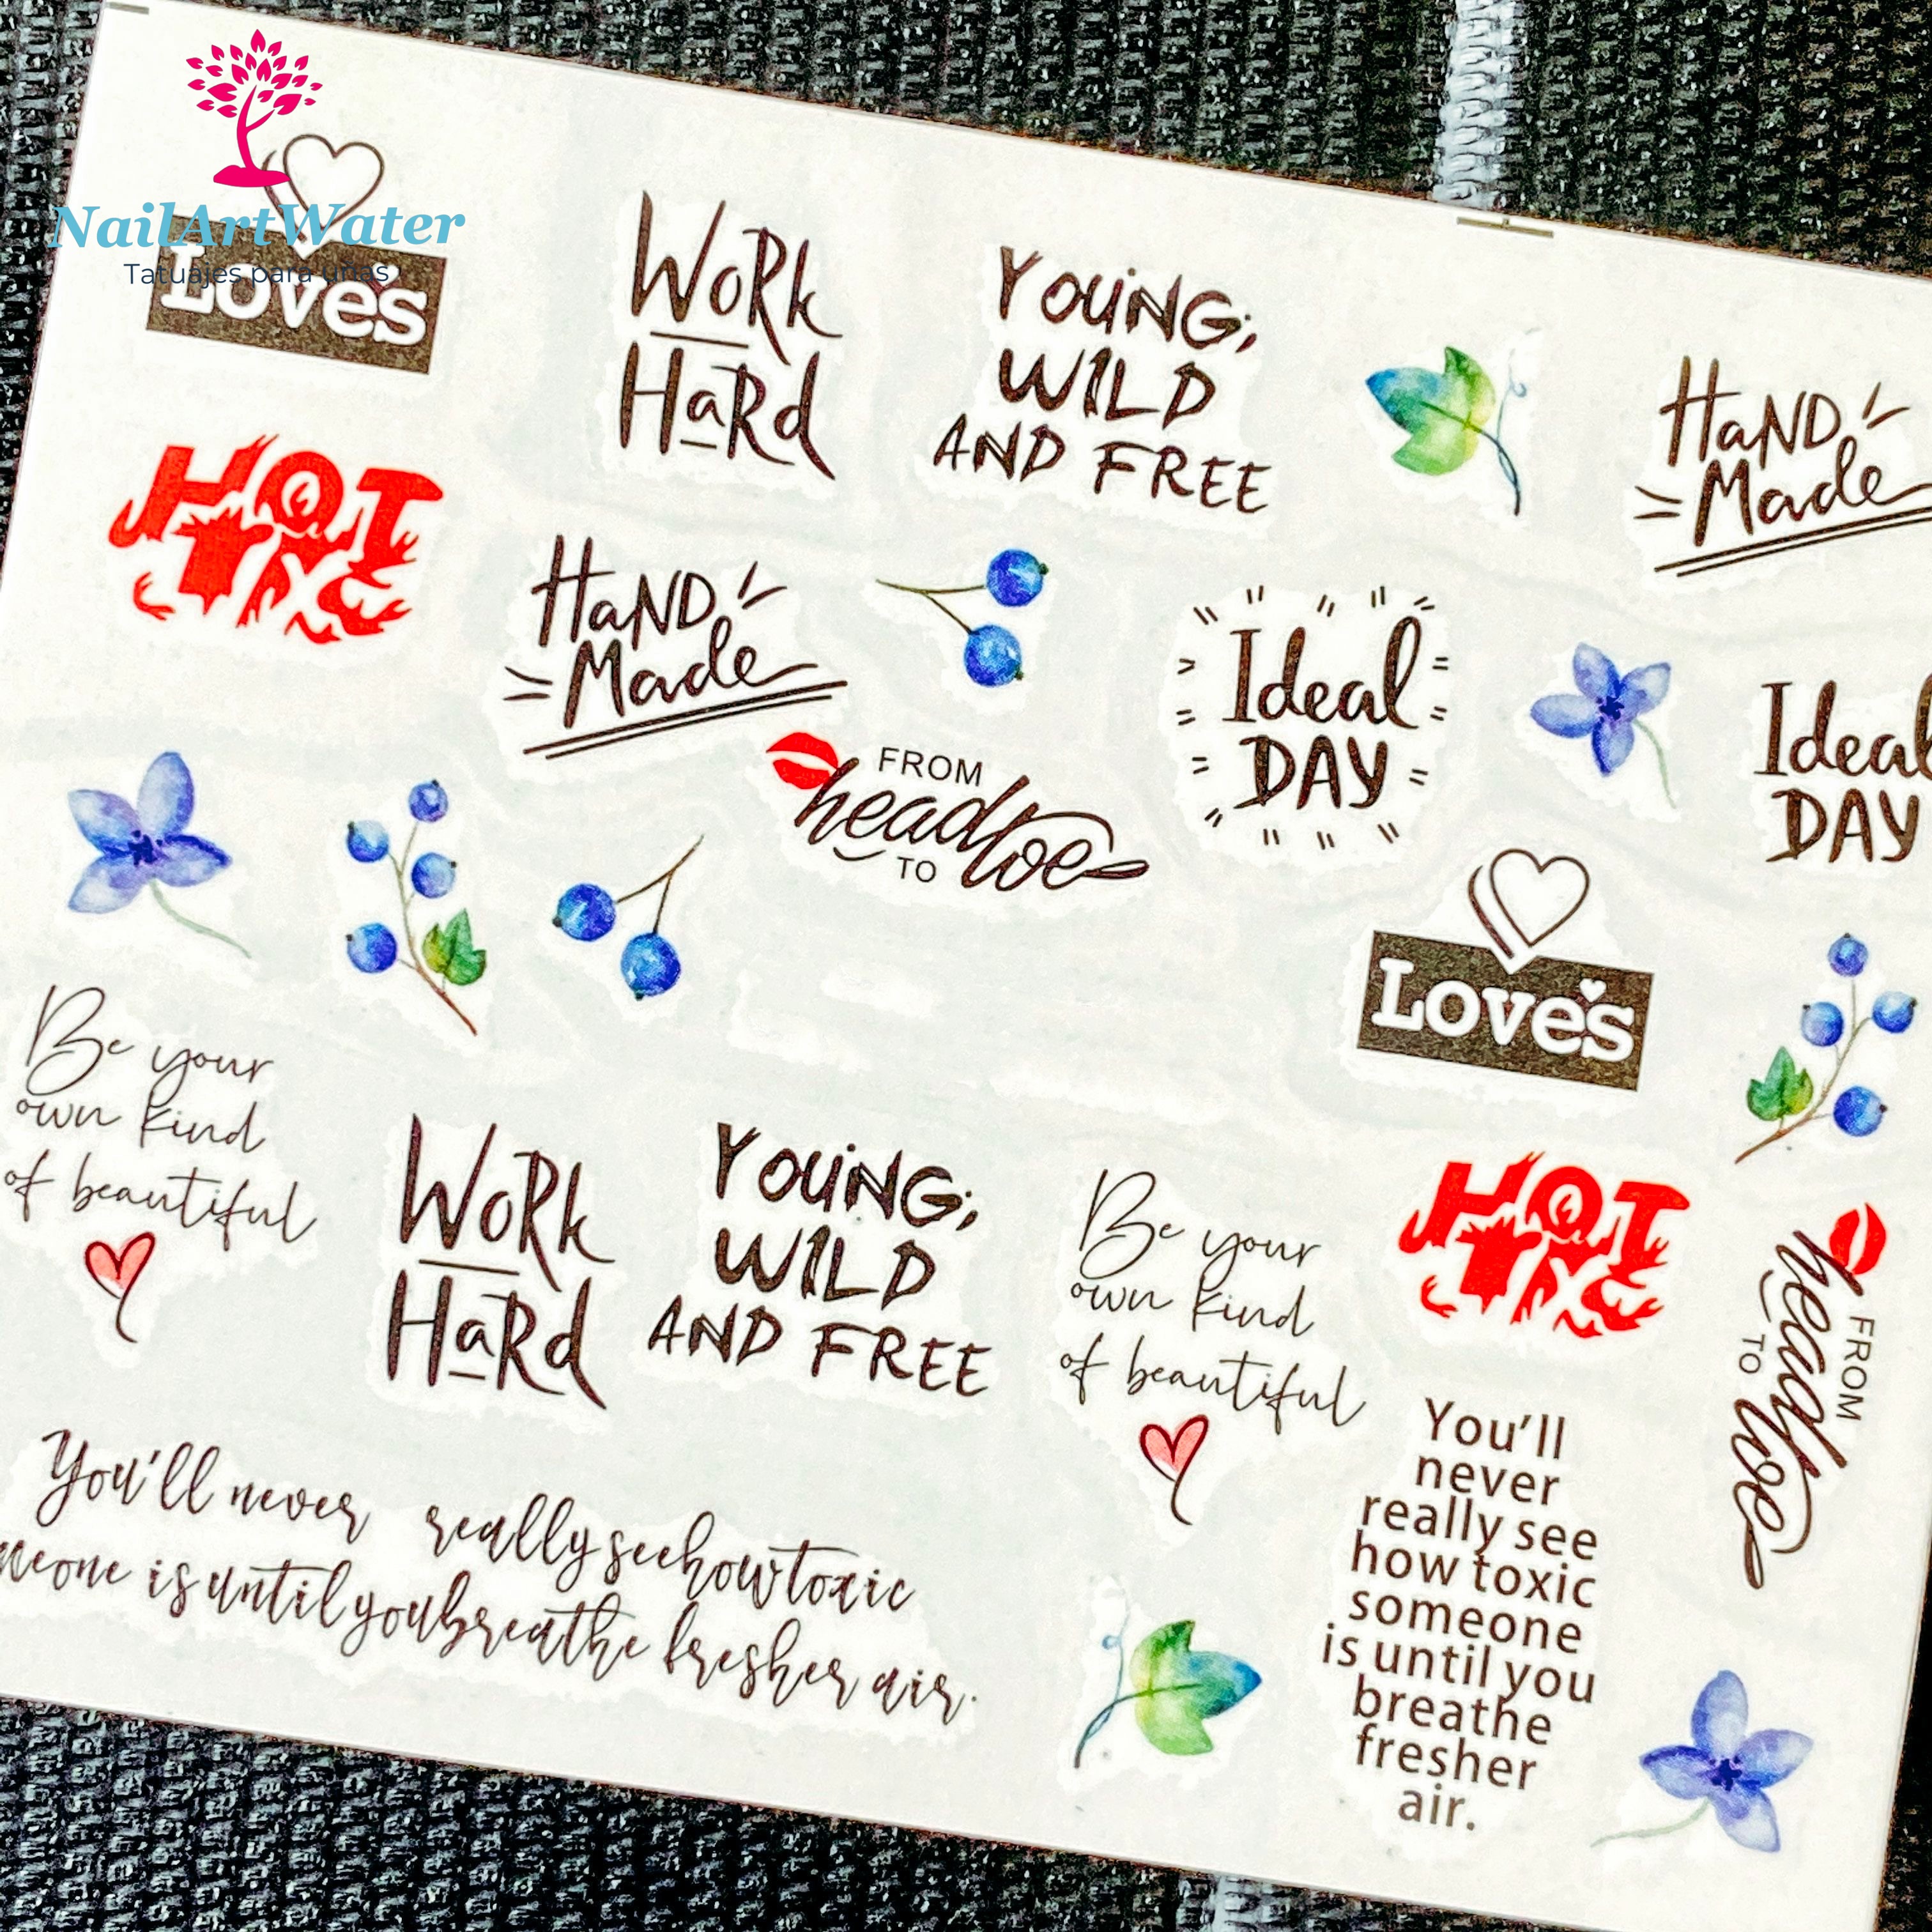 NailArtWater
Tatuajes para uñas
Loves
WoRk
HaRd
YOUiNG,
WILD
AND FREE
HaND
Made
HOT
HaND
Made
Ideal
DAY
Ideal
DAY
FROM
head
TO toe
Loves
Be your
own kind
of beautiful
WoRk
HaRd
YOUiNG,
WILD
AND FREE
Be your
own kind
of beautiful
HOT
FROM
head
TO toe
You'll never really see how toxic
is until you breathe fresher air.
You'll
never
really see
how toxic
someone
is until you
breathe
fresher
air.